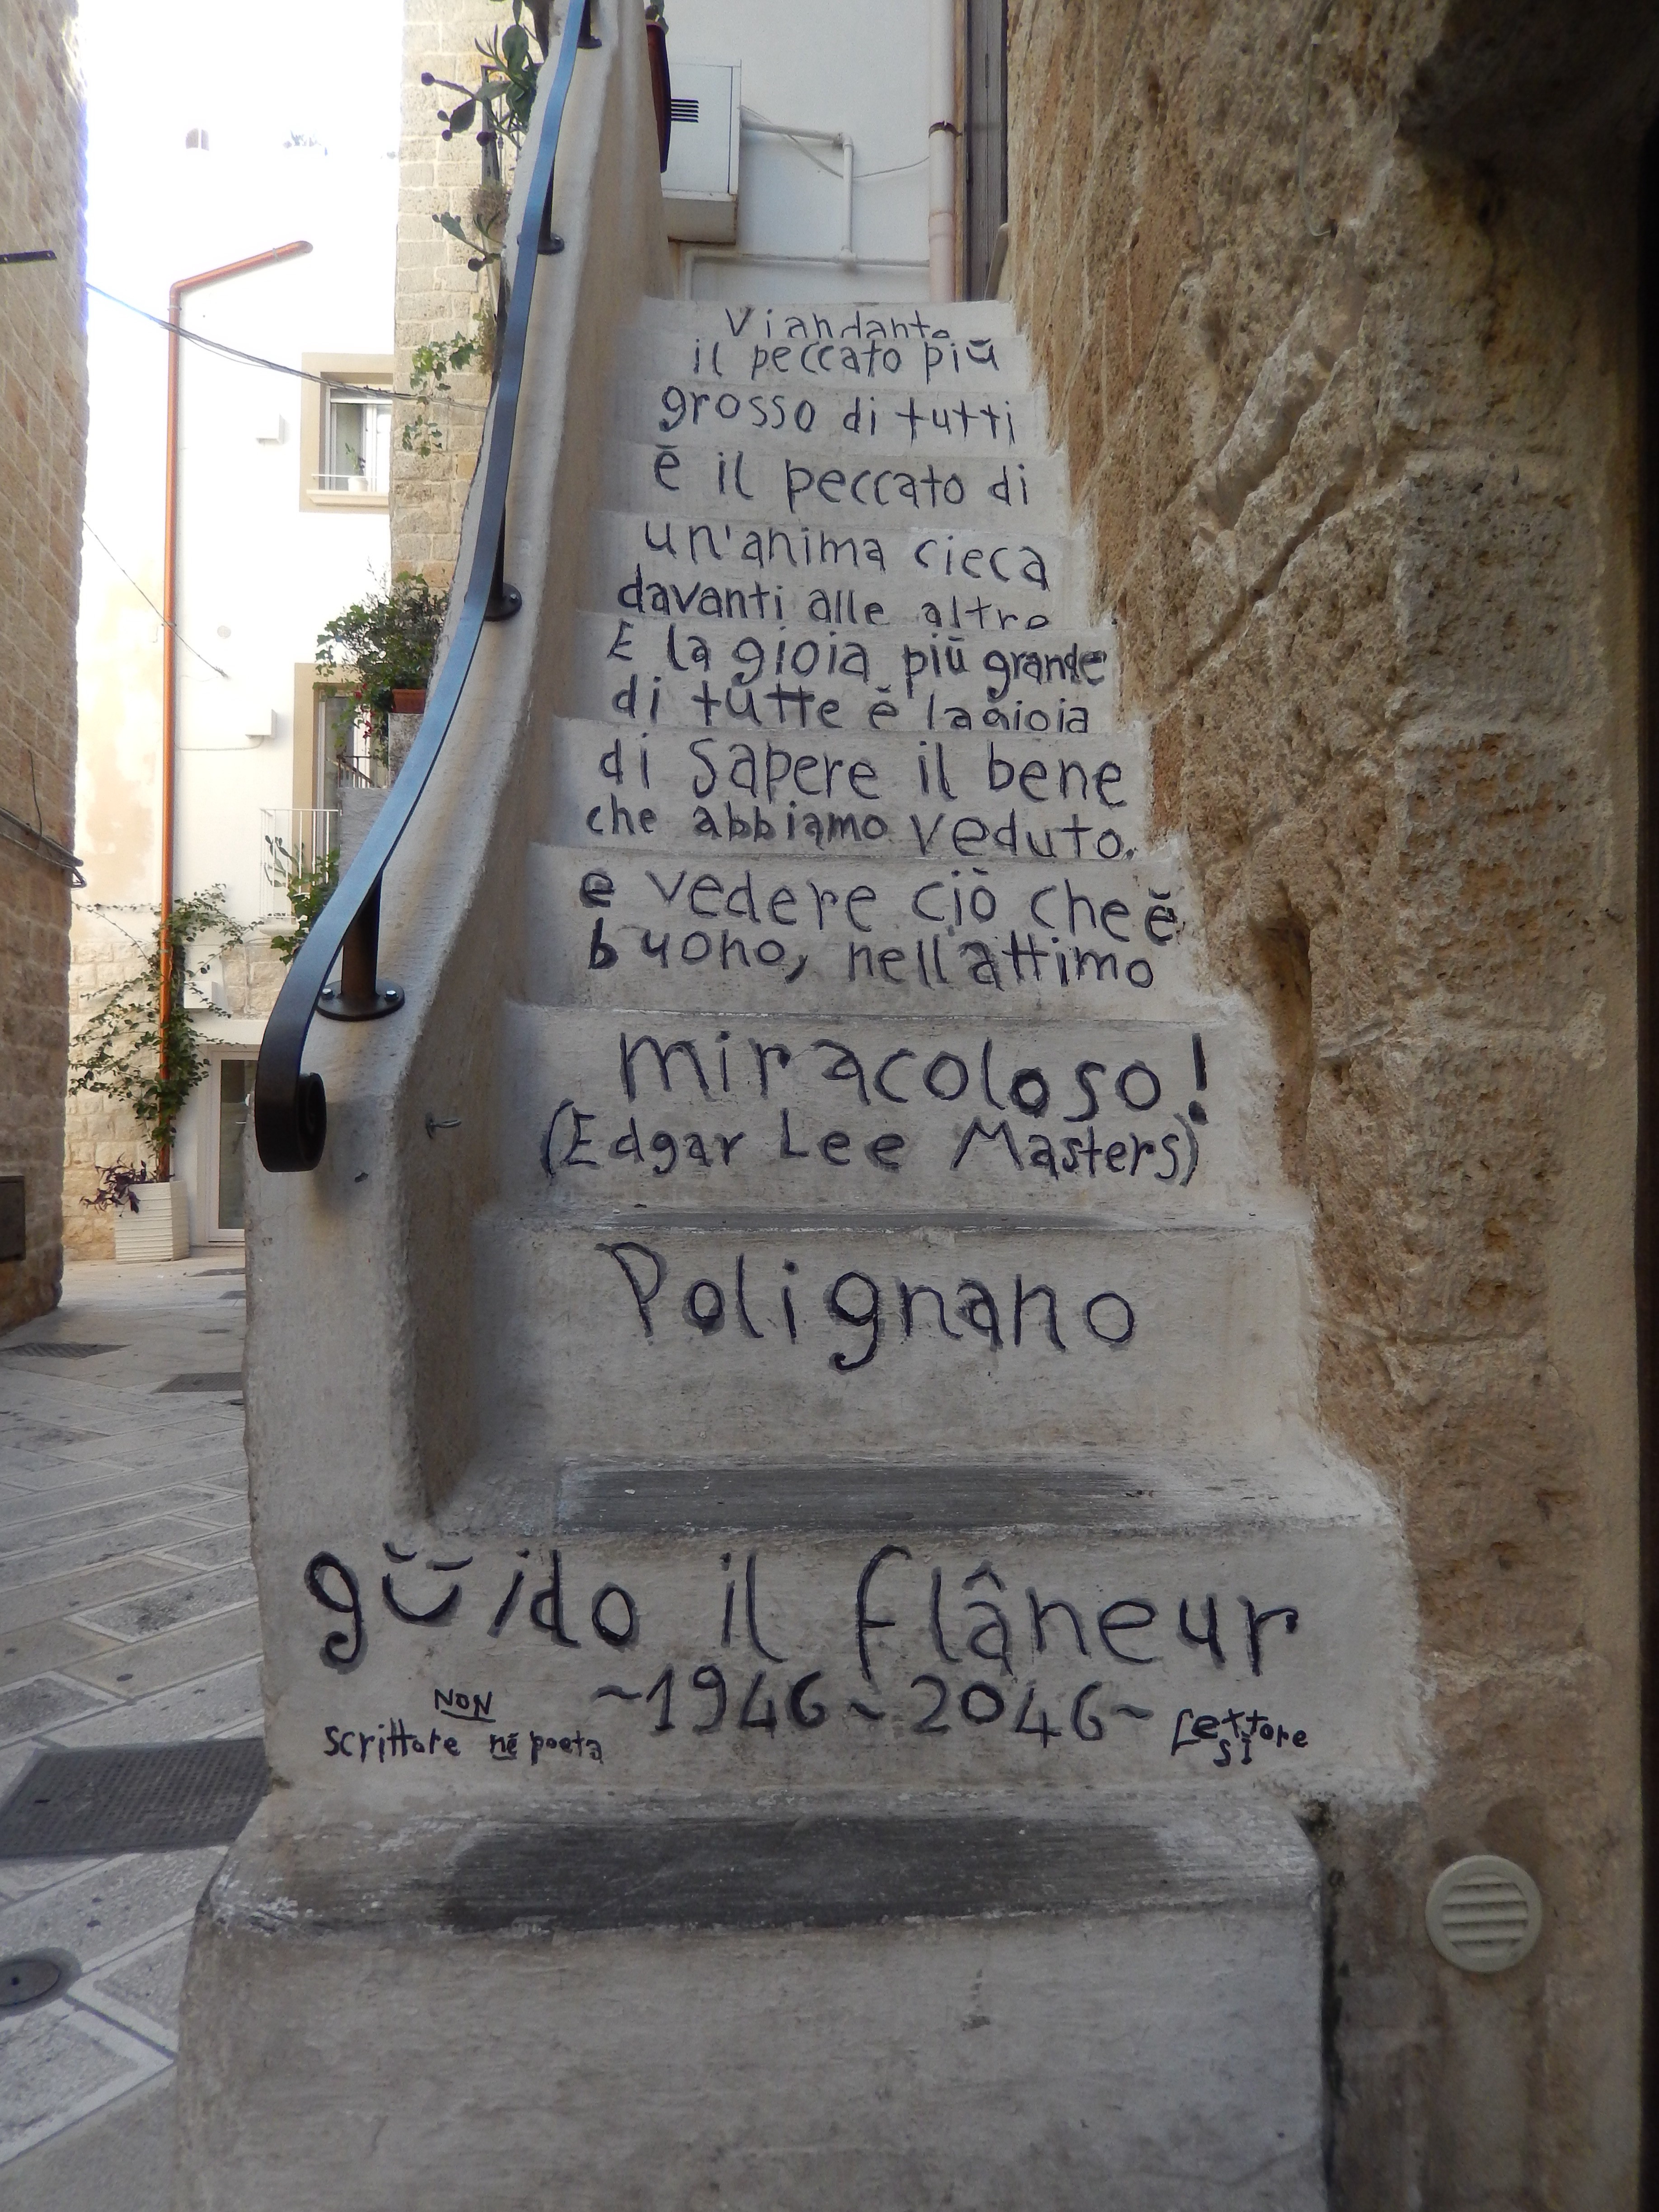 Viandante
il peccato più
grosso di tutti
è il peccato di
un'anima cieca
davanti alle altre
E la gioia più grande
di tutte è la gioia
di sapere il bene
che abbiamo veduto.
e vedere ciò che è
buono, nell'attimo
miracoloso!
(Edgar Lee Masters)
Polignano
gŭido il flâneur
~1946~2046~
NON
scrittore né poeta
Lettore
sì